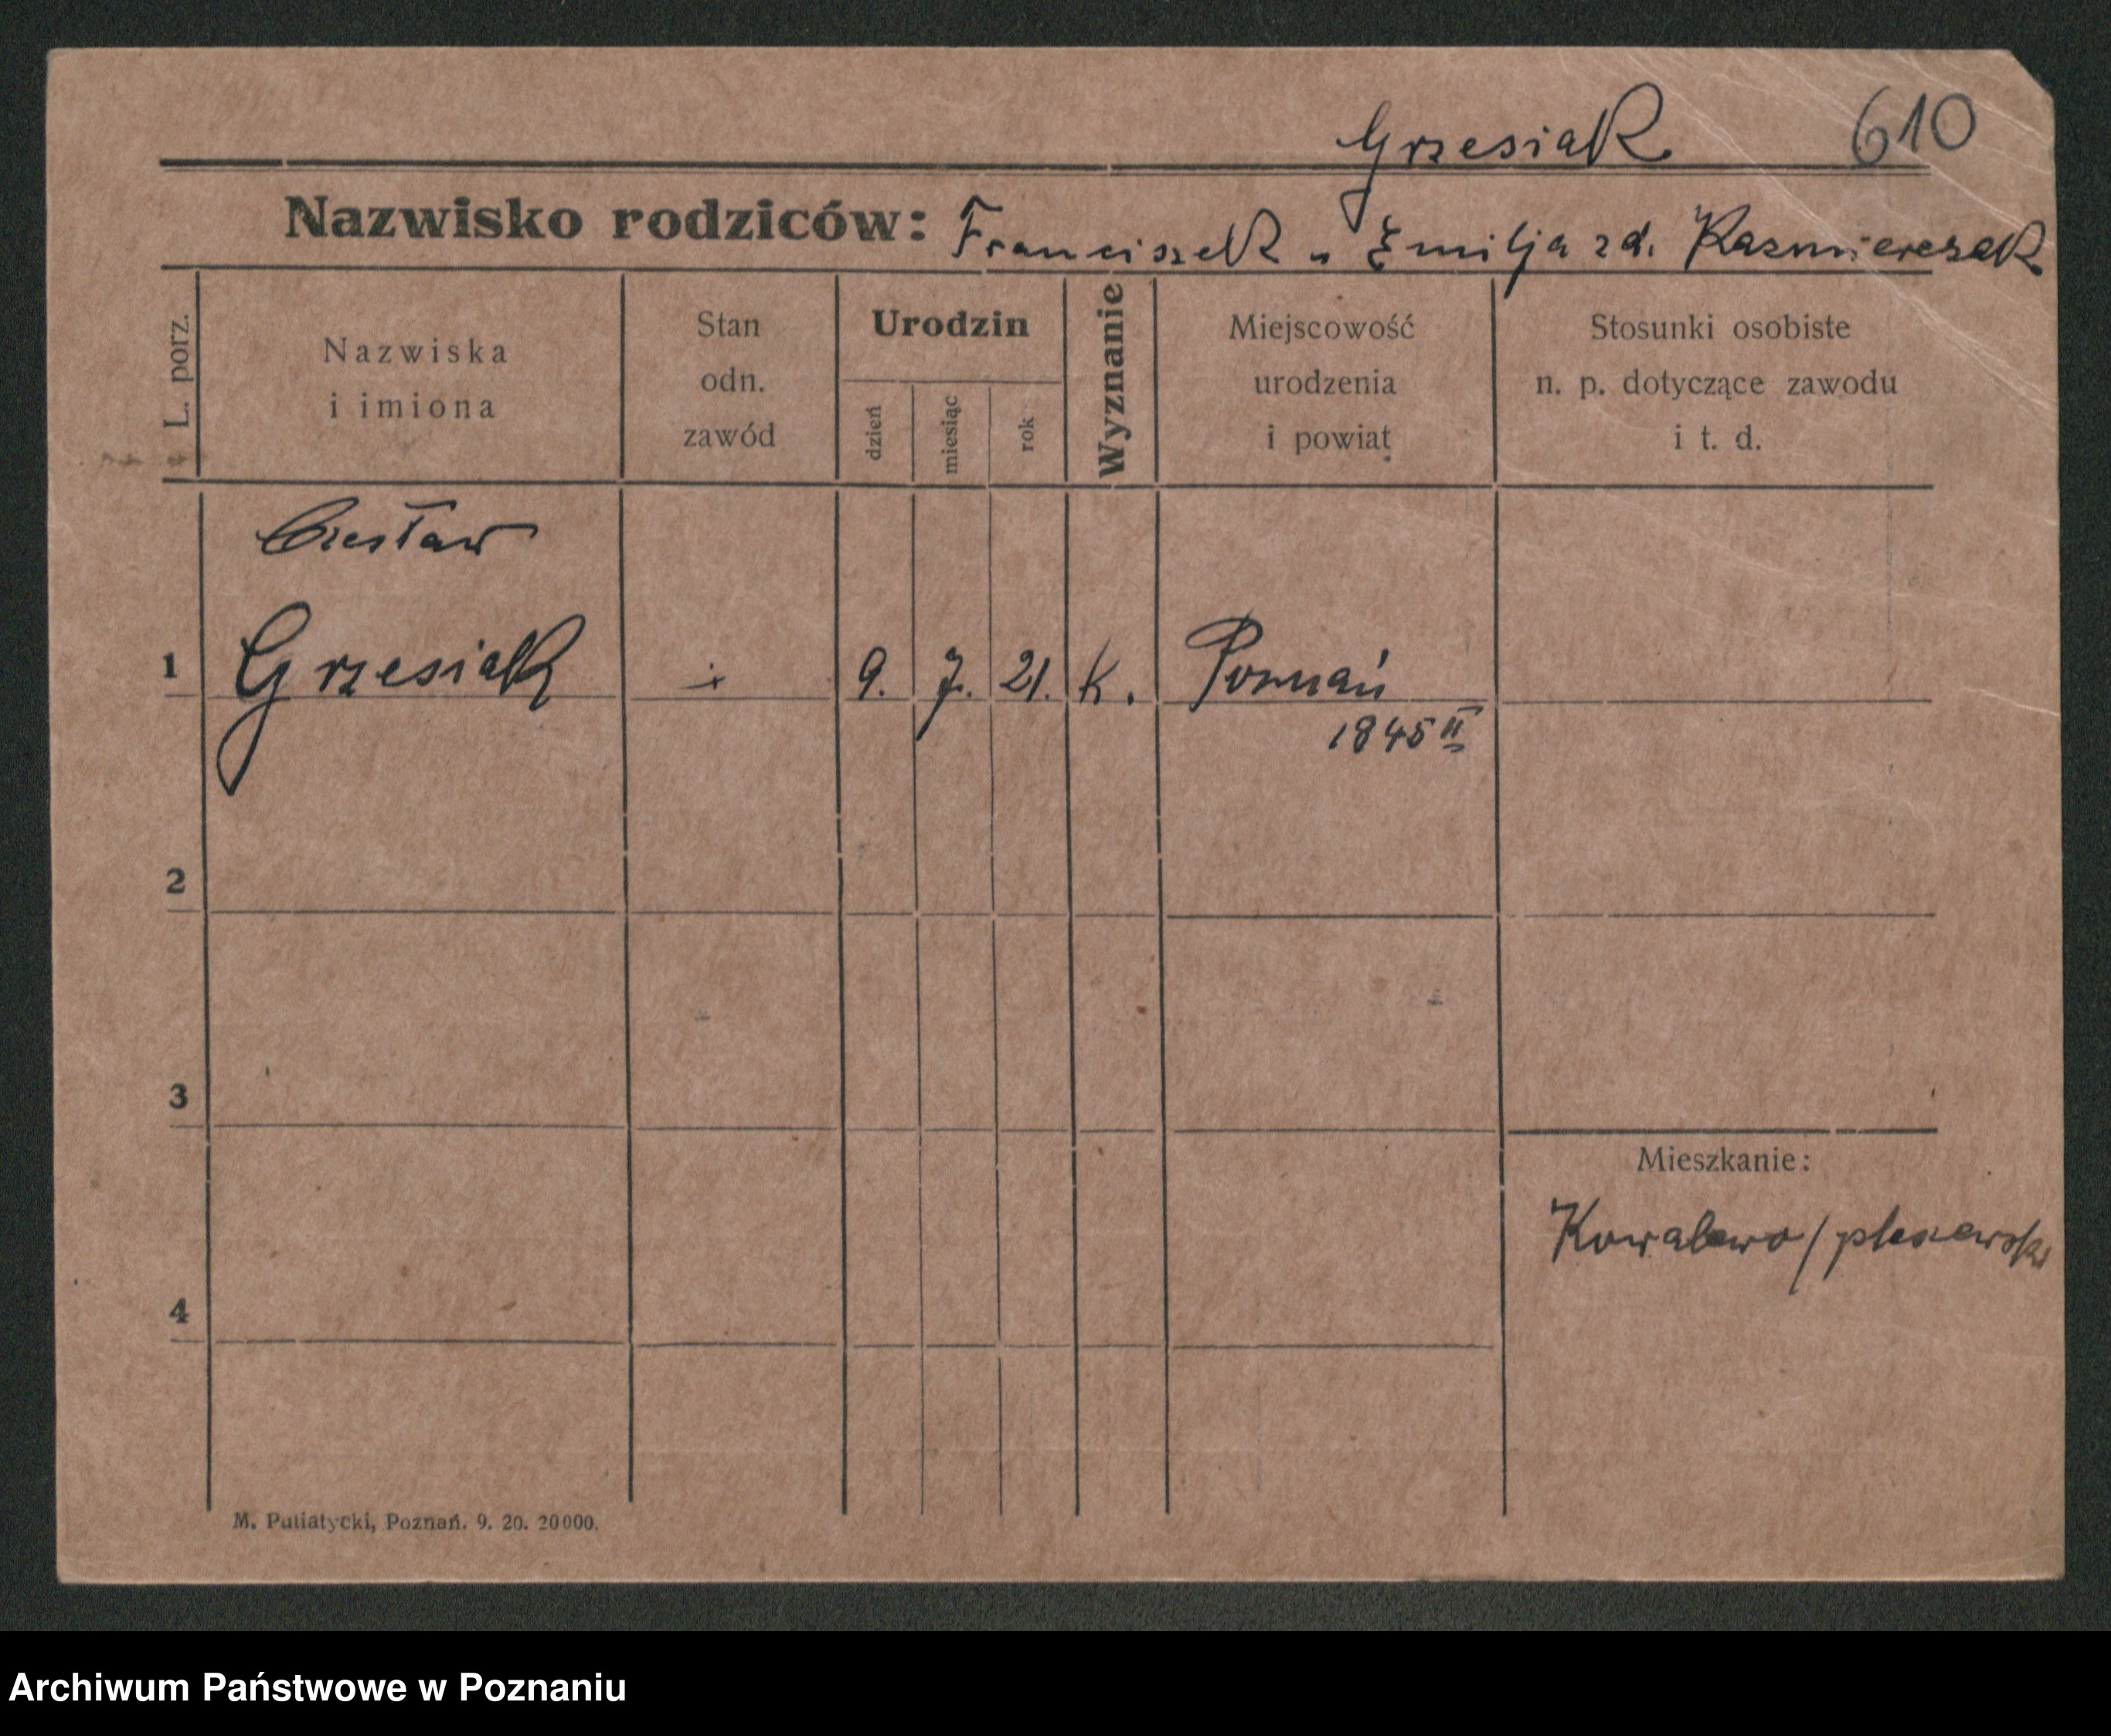 Grzesiak 610
Nazwisko rodziców: Franciszek u Emilja zd. Kazmierczak
L. porz.
Nazwiska
i imiona
Stan
odn.
zawód
Urodzin
dzień
miesiąc
rok
Wyznanie
Miejscowość
urodzenia
i powiat
Stosunki osobiste
n. p. dotyczące zawodu
i t. d.
Czesław
1 Grzesiak 9. 7. 21. K. Poznań
1845 II
2
3
Mieszkanie:
Kowalewo / pleszewski
4
M. Putiatycki, Poznań. 9. 20. 20000.
Archiwum Państwowe w Poznaniu